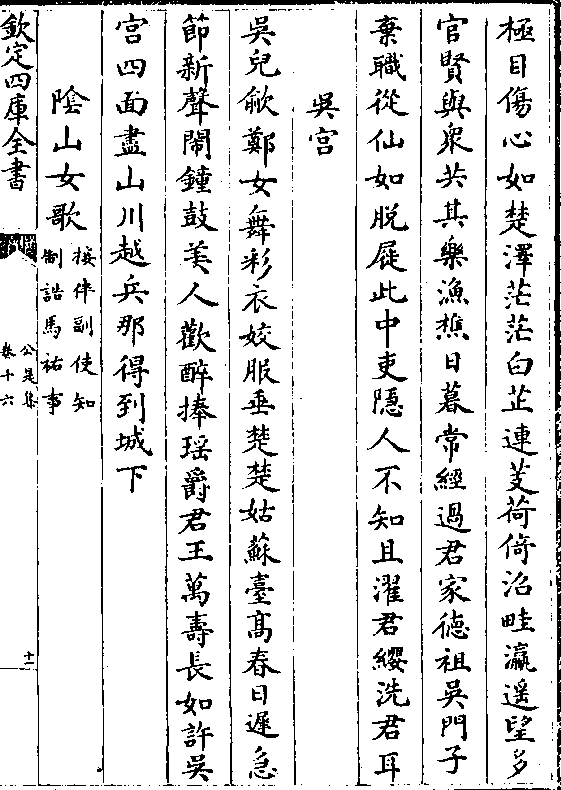 極目傷心如楚澤茫茫白芷連芰荷倚沼畦瀛遥望多
官賢與衆共其樂漁樵日暮常經過君家徳祖吳門子
棄職從仙如脱屣此中吏隱人不知且濯君纓洗君耳
吳宫
吳兒歈鄭女舞彩衣姣服垂楚楚姑蘇臺髙春日遲急
節新聲閙鐘鼓美人歡醉捧瑶爵君王萬壽長如許吳
宫四面盡山川越兵那得到城下
隂山女歌 接伴副使知制誥馬祐事
欽定四庫全書
公是集
卷十六
十二